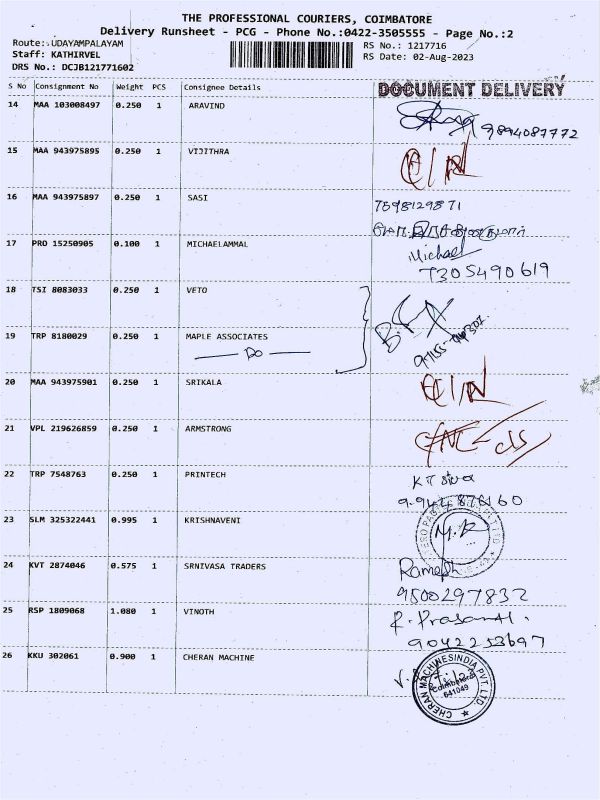 THE PROFESSIONAL COURIERS, COIMBATORE
Delivery Runsheet - PCG - Phone No.:0422-3505555 - Page No.:2
Route: UDAYAMPALAYAM
RS No.: 1217716
Staff: KATHIRVEL
RS Date: 02-Aug-2023
DRS No.: DCJB121771602
S No Consignment No Weight PCS Consignee Details
DOCUMENT DELIVERY
14 MAA 103008497 0.250 1 ARAVIND
9894087772
15 MAA 943975895 0.250 1 VIJITHRA
16 MAA 943975897 0.250 1 SASI
7598129871
17 PRO 15250905 0.100 1 MICHAELAMMAL
Michael
7305490619
18 TSI 8083033 0.250 1 VETO
19 TRP 8180029 0.250 1 MAPLE ASSOCIATES
DO
20 MAA 943975901 0.250 1 SRIKALA
21 VPL 219626859 0.250 1 ARMSTRONG
22 TRP 7548763 0.250 1 PRINTECH
23 SLM 325322441 0.995 1 KRISHNAVENI
M.R
24 KVT 2874046 0.575 1 SRNIVASA TRADERS
Ramesh
9500297832
25 RSP 1809068 1.080 1 VINOTH
R. Prasanth.
9042253697
26 KKU 302061 0.900 1 CHERAN MACHINE
CHERAN MACHINESINDIA PVT. LTD.
Coimbatore
641049